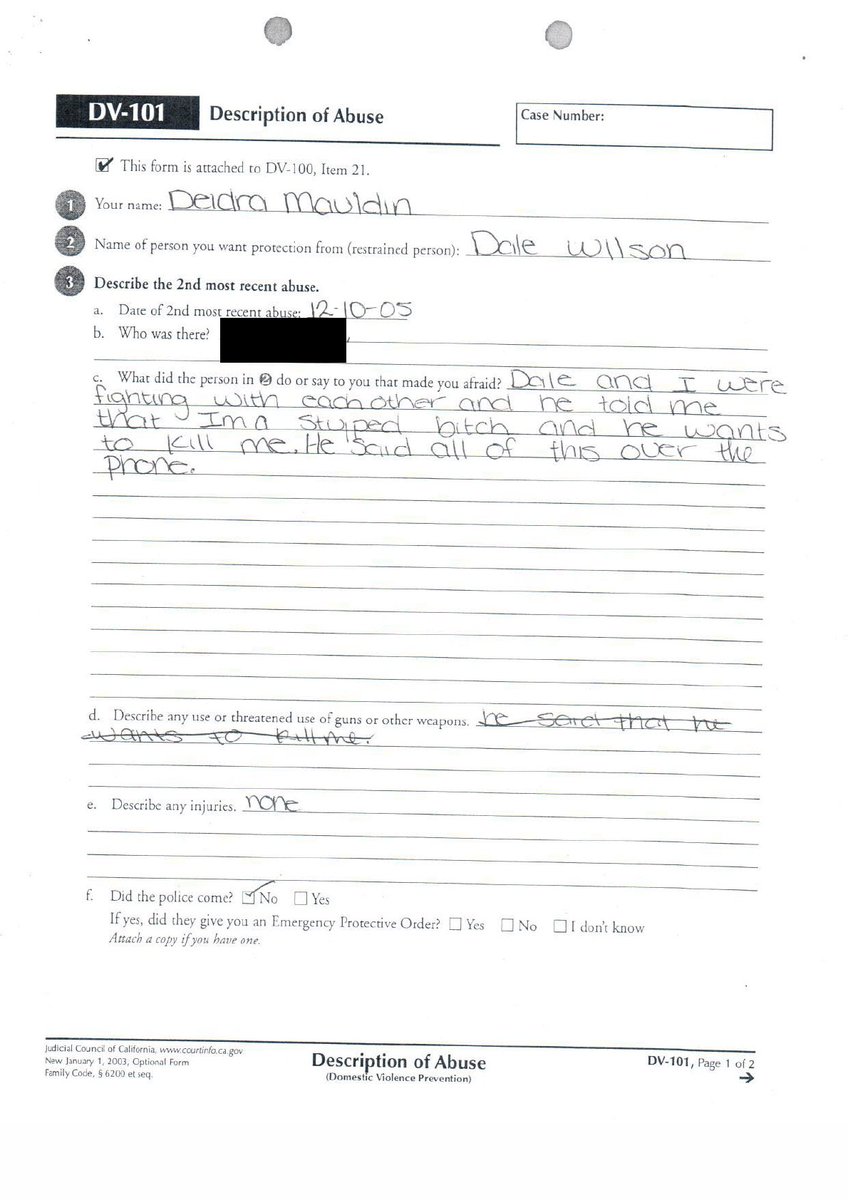 DV-101 Description of Abuse
Case Number:
This form is attached to DV-100, Item 21.
1 Your name: Deidra Mauldin
2 Name of person you want protection from (restrained person): Dale Wilson
3 Describe the 2nd most recent abuse.
a. Date of 2nd most recent abuse: 12-10-05
b. Who was there?
c. What did the person in 2 do or say to you that made you afraid? Dale and I were
fighting with each other and he told me
that Im a stuiped bitch and he wants
to kill me. He said all of this over the
phone.
d. Describe any use or threatened use of guns or other weapons. he said that he
wants to kill me.
e. Describe any injuries. none
f. Did the police come? No Yes
If yes, did they give you an Emergency Protective Order? Yes No I don't know
Attach a copy if you have one.
Judicial Council of California, www.courtinfo.ca.gov
New January 1, 2003, Optional Form
Family Code, § 6200 et seq.
Description of Abuse
(Domestic Violence Prevention)
DV-101, Page 1 of 2